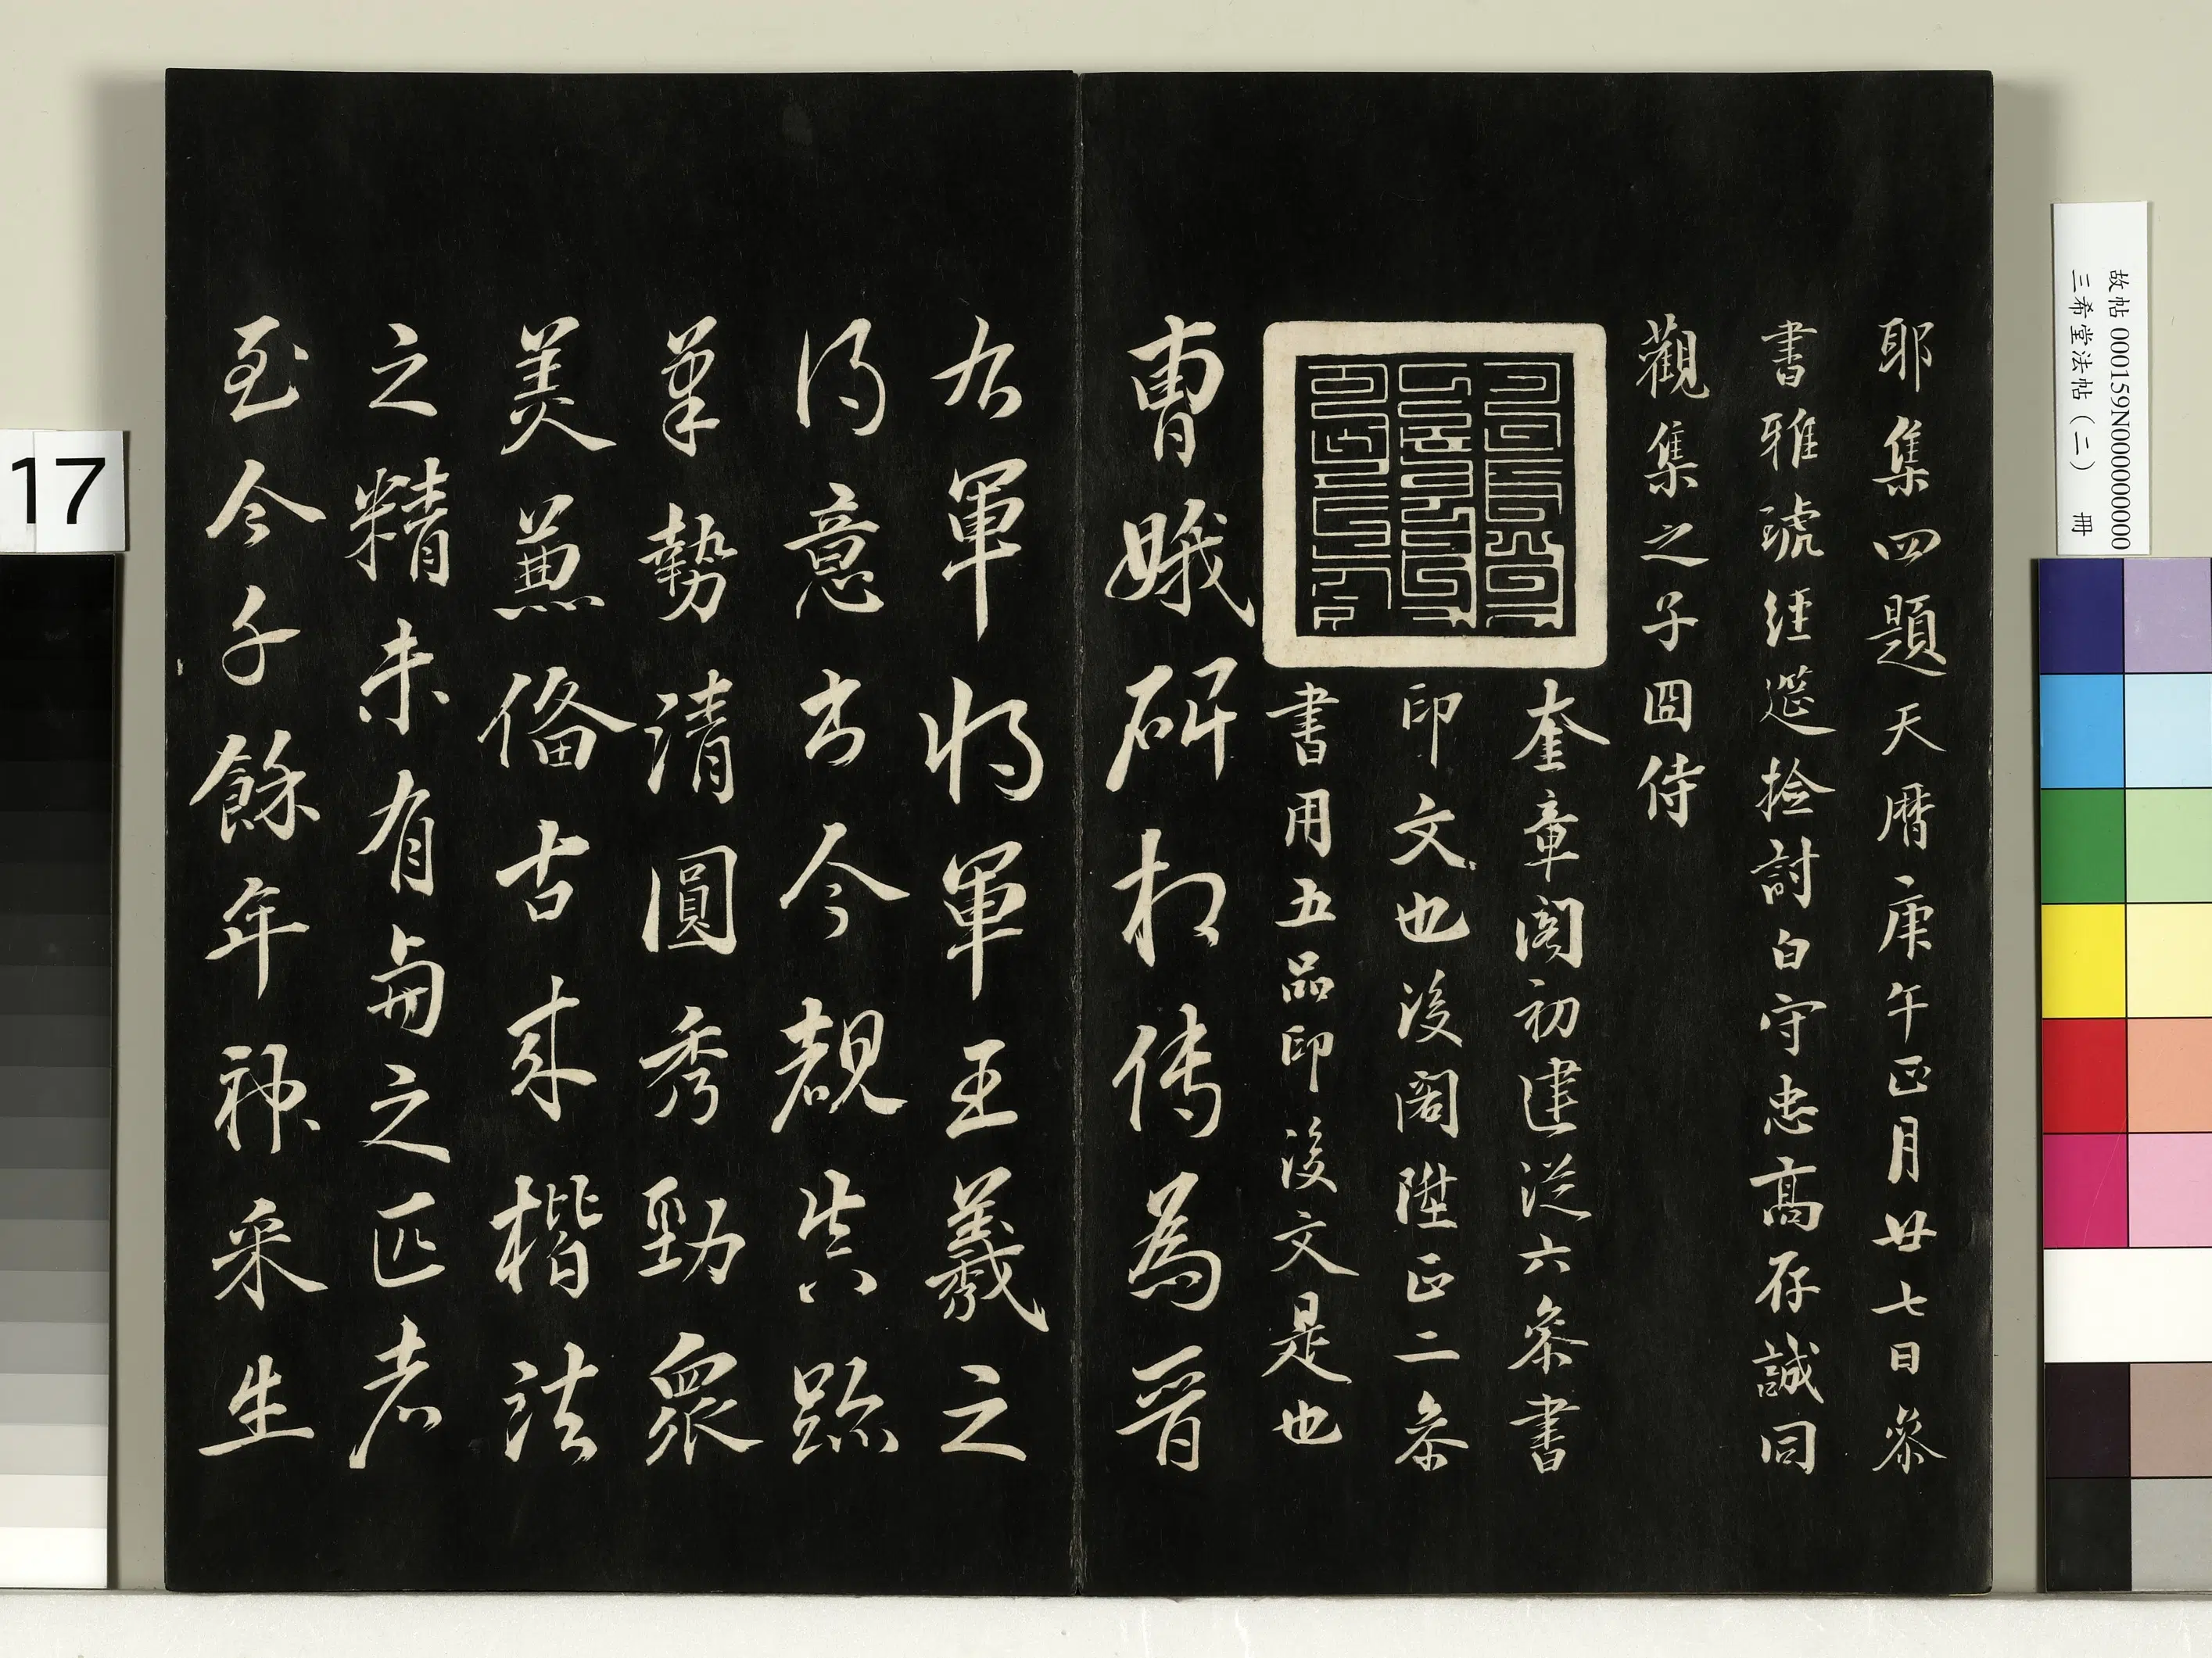 耶集四題天曆庚午正月廿七日叅
書雅琥經筵撿討白守忠高存誠同
觀集之子囧侍
奎章閣初建從六叅書
印文也後閣陞正二叅
書用五品印後文是也
曹娥碑相传為晉
右軍将軍王羲之
得意書今觀真跡
筆勢清圓秀勁衆
美兼俻古来楷法
之精未有與之匹者
至今千餘年神采生
故帖 000159N000000000
三希堂法帖（二） 冊
17